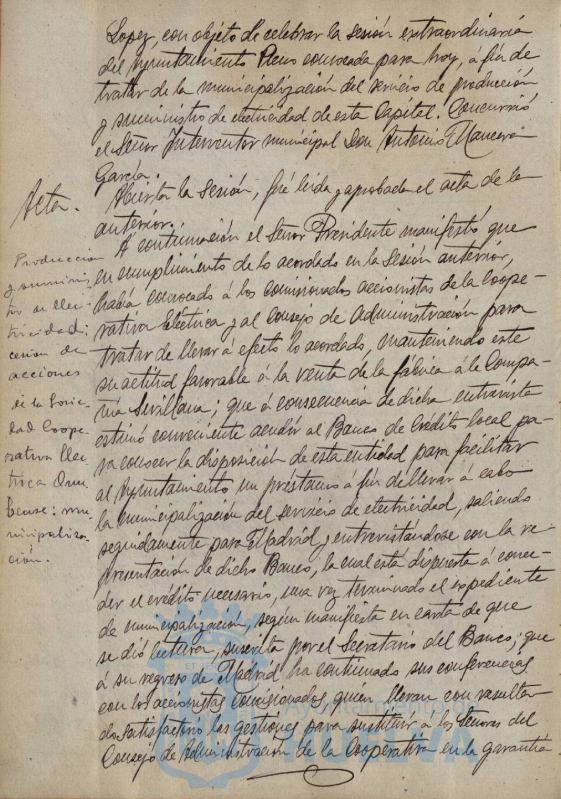 Lopez, con objeto de celebrar la sesión extraordinaria
del Ayuntamiento Pleno convocada para hoy, á fin de
tratar de la municipalización del servicio de producción
y suministro de electricidad de esta Capital. Concurrió
el Señor Interventor municipal Don Antonio Mancera
García.
Acta.
Abierta la Sesión, fué leida y aprobada el acta de la
anterior.
Producción
y suminis-
tro de elec-
tricidad:
cesion de
acciones
de la Socie-
dad Coope-
rativa Elec-
trica Onu-
bense: mu-
nicipaliza-
ción.
Á continuación el Señor Presidente manifestó que
en cumplimiento de lo acordado en la Sesión anterior,
había convocado á los comisionados accionistas de la Coope-
rativa Electrica y al Consejo de Administración para
tratar de llevar á efecto lo acordado, manteniendo este
su actitud favorable á la venta de la fábrica á la Compa-
ñia Sevillana; que á consecuencia de dicha entrevista
estimó conveniente acudir al Banco de Crédito local pa-
ra conocer la disposición de esta entidad para facilitar
al Ayuntamiento un préstamo á fin de llevar á cabo
la municipalización del servicio de electricidad, saliendo
seguidamente para Madrid y entrevistandose con la re-
presentación de dicho Banco, la cual está dispuesta á conce-
der el crédito necesario, una vez terminado el expediente
de municipalización, según manifiesta en carta de que
se dió lectura, suscrita por el Secretario del Banco; que
á su regreso de Madrid ha continuado sus conferencias
con los accionistas comisionados quien llevan con resulta-
do satisfactorio las gestiones para sustituir á los Señores del
Consejo de Administración de la Cooperativa en la garantía
Ayuntamiento de
HUELVA